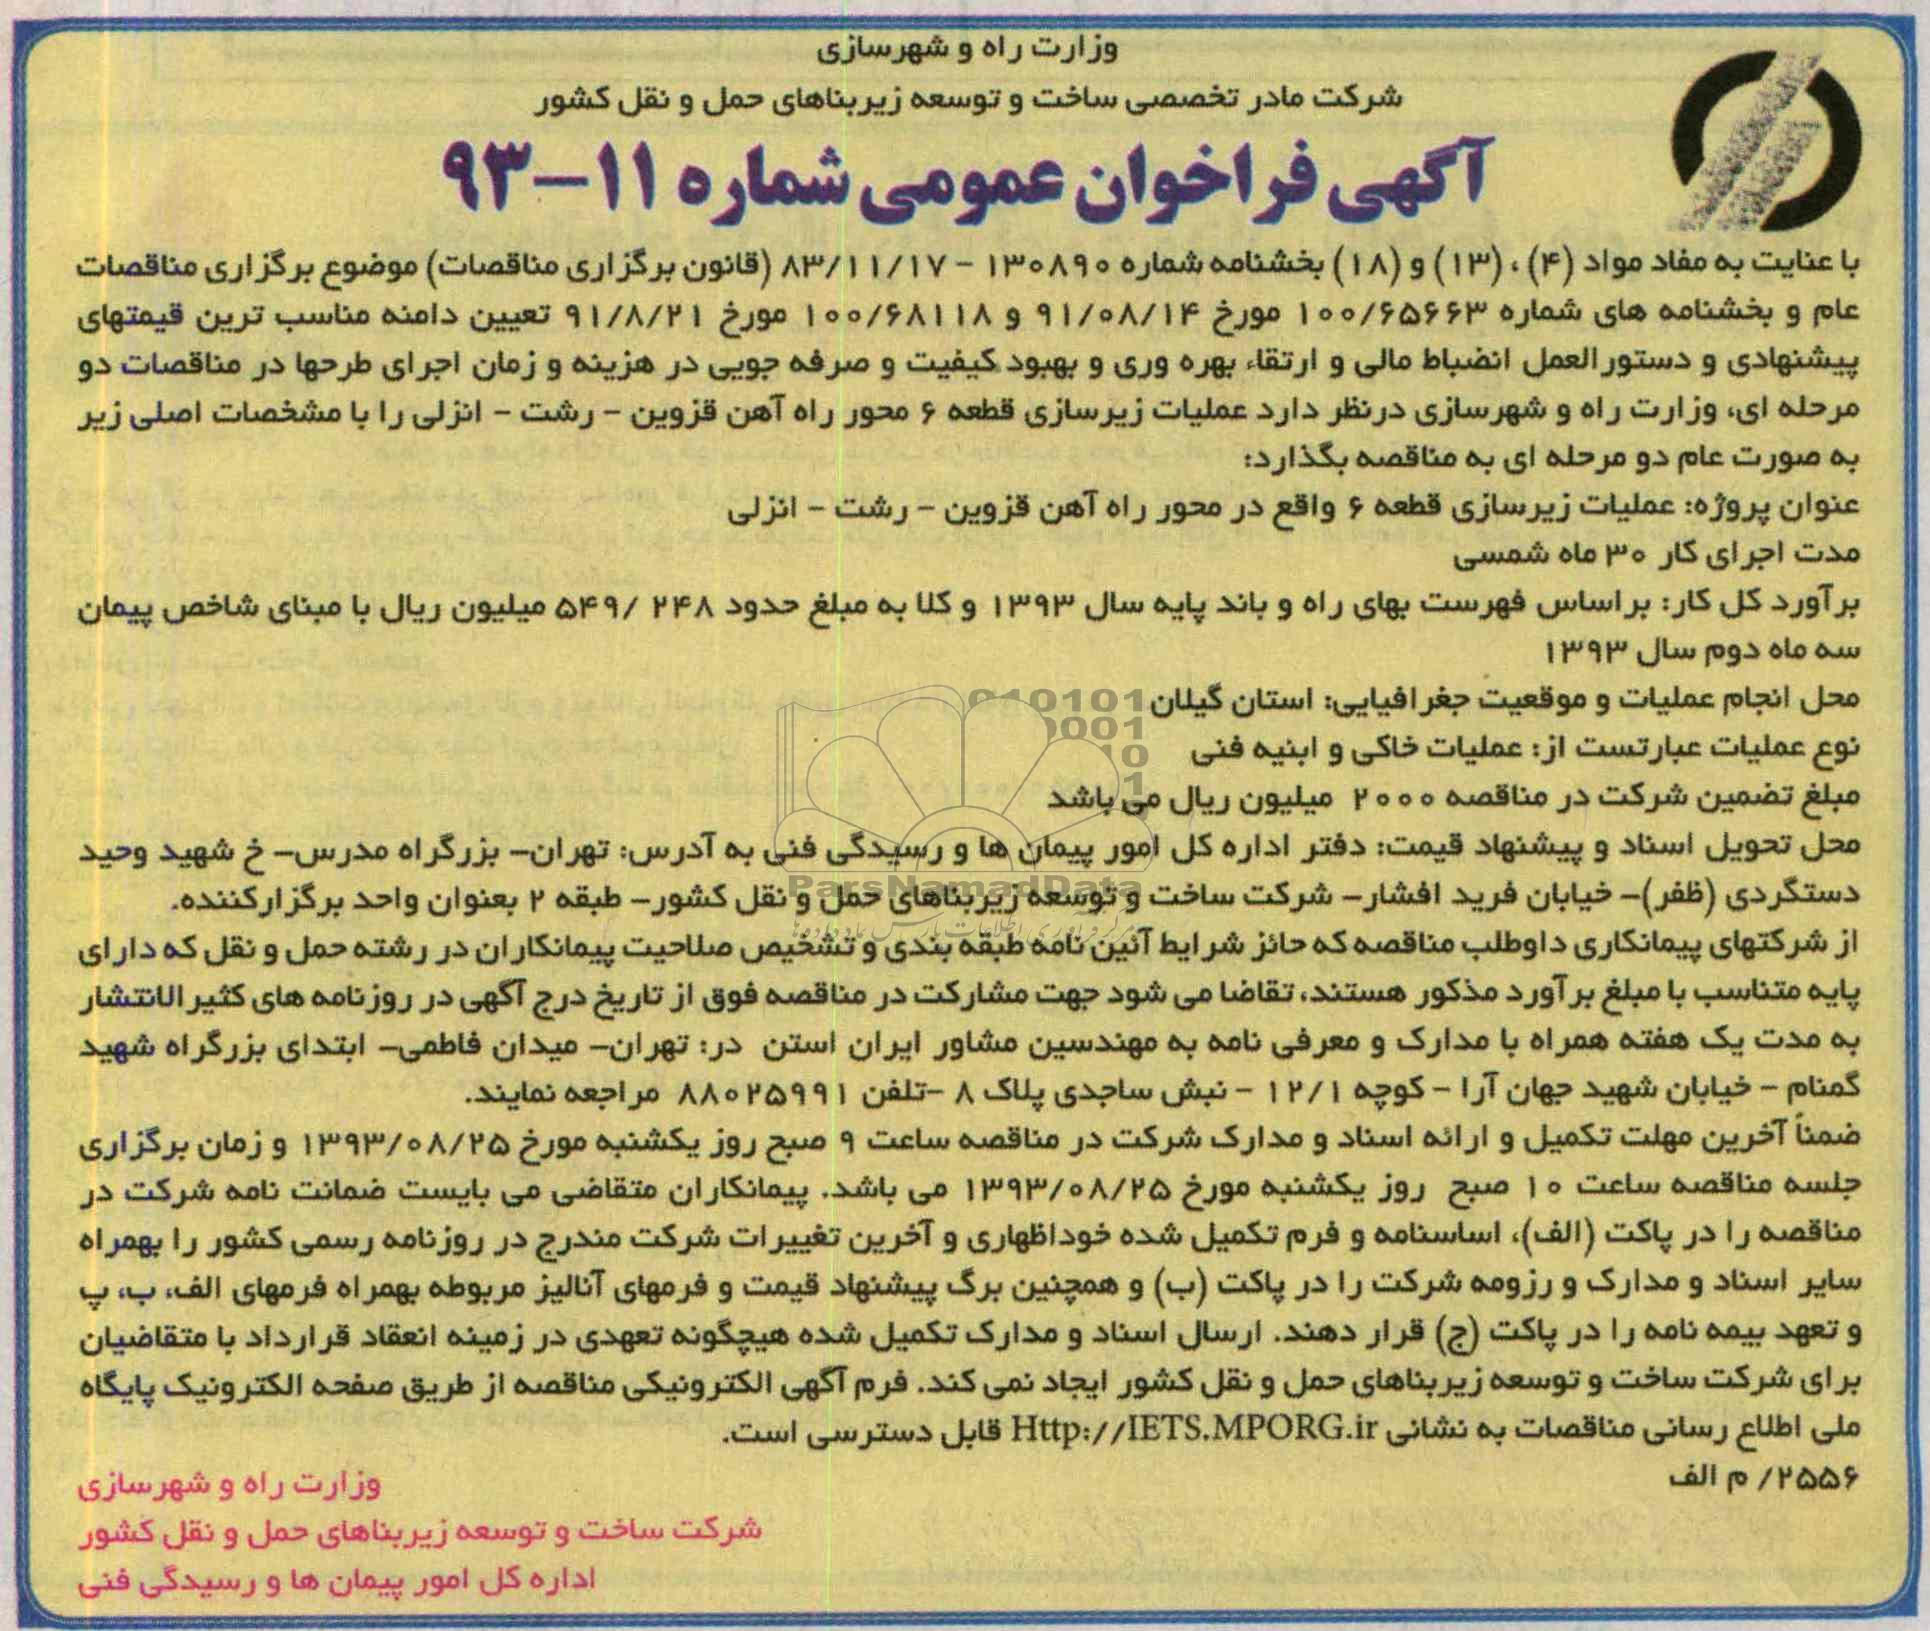 وزارت راه و شهرسازی
شرکت مادر تخصصی ساخت و توسعه زیربناهای حمل و نقل کشور
آگهی فراخوان عمومی شماره ۱۱-۹۳
با عنایت به مفاد مواد (۴)، (۱۳) و (۱۸) بخشنامه شماره ۱۳۰۸۹۰ - ۸۳/۱۱/۱۷ (قانون برگزاری مناقصات) موضوع برگزاری مناقصات
عام و بخشنامه های شماره ۱۰۰/۶۵۶۶۳ مورخ ۹۱/۰۸/۱۴ و ۱۰۰/۶۸۱۱۸ مورخ ۹۱/۸/۲۱ تعیین دامنه مناسب ترین قیمتهای
پیشنهادی و دستورالعمل انضباط مالی و ارتقاء بهره وری و بهبود کیفیت و صرفه جویی در هزینه و زمان اجرای طرحها در مناقصات دو
مرحله ای، وزارت راه و شهرسازی درنظر دارد عملیات زیرسازی قطعه ۶ محور راه آهن قزوین - رشت - انزلی را با مشخصات اصلی زیر
به صورت عام دو مرحله ای به مناقصه بگذارد:
عنوان پروژه: عملیات زیرسازی قطعه ۶ واقع در محور راه آهن قزوین - رشت - انزلی
مدت اجرای کار ۳۰ ماه شمسی
برآورد کل کار: براساس فهرست بهای راه و باند پایه سال ۱۳۹۳ و کلا به مبلغ حدود ۲۴۸ /۵۴۹ میلیون ریال با مبنای شاخص پیمان
سه ماه دوم سال ۱۳۹۳
محل انجام عملیات و موقعیت جغرافیایی: استان گیلان
نوع عملیات عبارتست از: عملیات خاکی و ابنیه فنی
مبلغ تضمین شرکت در مناقصه ۲۰۰۰ میلیون ریال می باشد
محل تحویل اسناد و پیشنهاد قیمت: دفتر اداره کل امور پیمان ها و رسیدگی فنی به آدرس: تهران- بزرگراه مدرس- خ شهید وحید
دستگردی (ظفر)- خیابان فرید افشار- شرکت ساخت و توسعه زیربناهای حمل و نقل کشور- طبقه ۲ بعنوان واحد برگزارکننده.
از شرکتهای پیمانکاری داوطلب مناقصه که حائز شرایط آئین نامه طبقه بندی و تشخیص صلاحیت پیمانکاران در رشته حمل و نقل که دارای
پایه متناسب با مبلغ برآورد مذکور هستند، تقاضا می شود جهت مشارکت در مناقصه فوق از تاریخ درج آگهی در روزنامه های کثیرالانتشار
به مدت یک هفته همراه با مدارک و معرفی نامه به مهندسین مشاور ایران استن در: تهران- میدان فاطمی- ابتدای بزرگراه شهید
گمنام - خیابان شهید جهان آرا - کوچه ۱۲/۱ - نبش ساجدی پلاک ۸ -تلفن ۸۸۰۲۵۹۹۱ مراجعه نمایند.
ضمناً آخرین مهلت تکمیل و ارائه اسناد و مدارک شرکت در مناقصه ساعت ۹ صبح روز یکشنبه مورخ ۱۳۹۳/۰۸/۲۵ و زمان برگزاری
جلسه مناقصه ساعت ۱۰ صبح روز یکشنبه مورخ ۱۳۹۳/۰۸/۲۵ می باشد. پیمانکاران متقاضی می بایست ضمانت نامه شرکت در
مناقصه را در پاکت (الف)، اساسنامه و فرم تکمیل شده خوداظهاری و آخرین تغییرات شرکت مندرج در روزنامه رسمی کشور را بهمراه
سایر اسناد و مدارک و رزومه شرکت را در پاکت (ب) و همچنین برگ پیشنهاد قیمت و فرمهای آنالیز مربوطه بهمراه فرمهای الف، ب، پ
و تعهد بیمه نامه را در پاکت (ج) قرار دهند. ارسال اسناد و مدارک تکمیل شده هیچگونه تعهدی در زمینه انعقاد قرارداد با متقاضیان
برای شرکت ساخت و توسعه زیربناهای حمل و نقل کشور ایجاد نمی کند. فرم آگهی الکترونیکی مناقصه از طریق صفحه الکترونیک پایگاه
ملی اطلاع رسانی مناقصات به نشانی Http://IETS.MPORG.ir قابل دسترسی است.
۲۵۵۶/ م الف
وزارت راه و شهرسازی
شرکت ساخت و توسعه زیربناهای حمل و نقل کشور
اداره کل امور پیمان ها و رسیدگی فنی
ParsNamadData